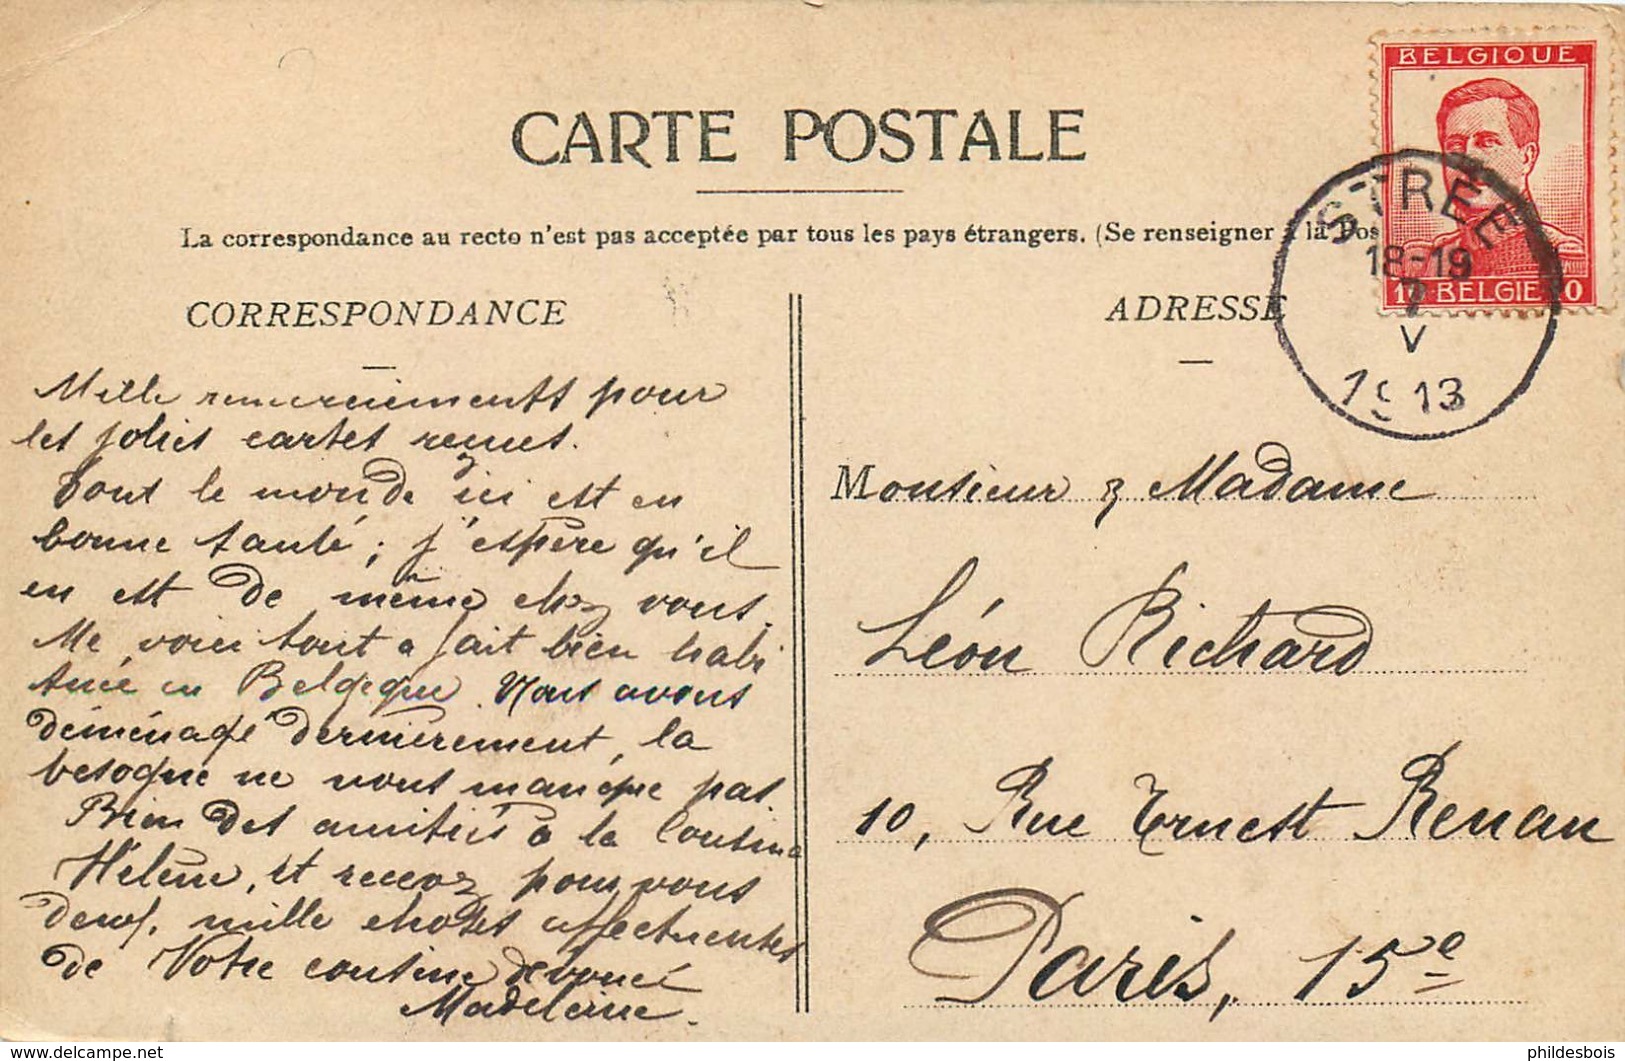 BELGIQUE
CARTE POSTALE
La correspondance au recto n'est pas acceptée par tous les pays étrangers. (Se renseigner à la Pos
STRÉE
18-19
7
V
1913
10 BELGIE 10
CORRESPONDANCE
Mille remerciements pour
les jolies cartes reçues.
Tout le monde ici est en
bonne santé; j'espère qu'il
en est de même chez vous.
Me voici tout a fait bien habi
tuée en Belgique. Nous avons
déménagé dernièrement, la
besogne ne nous manque pas.
Bien des amitiés à la Cousine
Hélène, et recevez pour vous
deux, mille choses affectueuses
de Votre cousine dévouée
Madeleine.
ADRESSE
Monsieur & Madame
Léon Richard
10, Rue Ernest Renan
Paris, 15e
www.delcampe.net
phildesbois